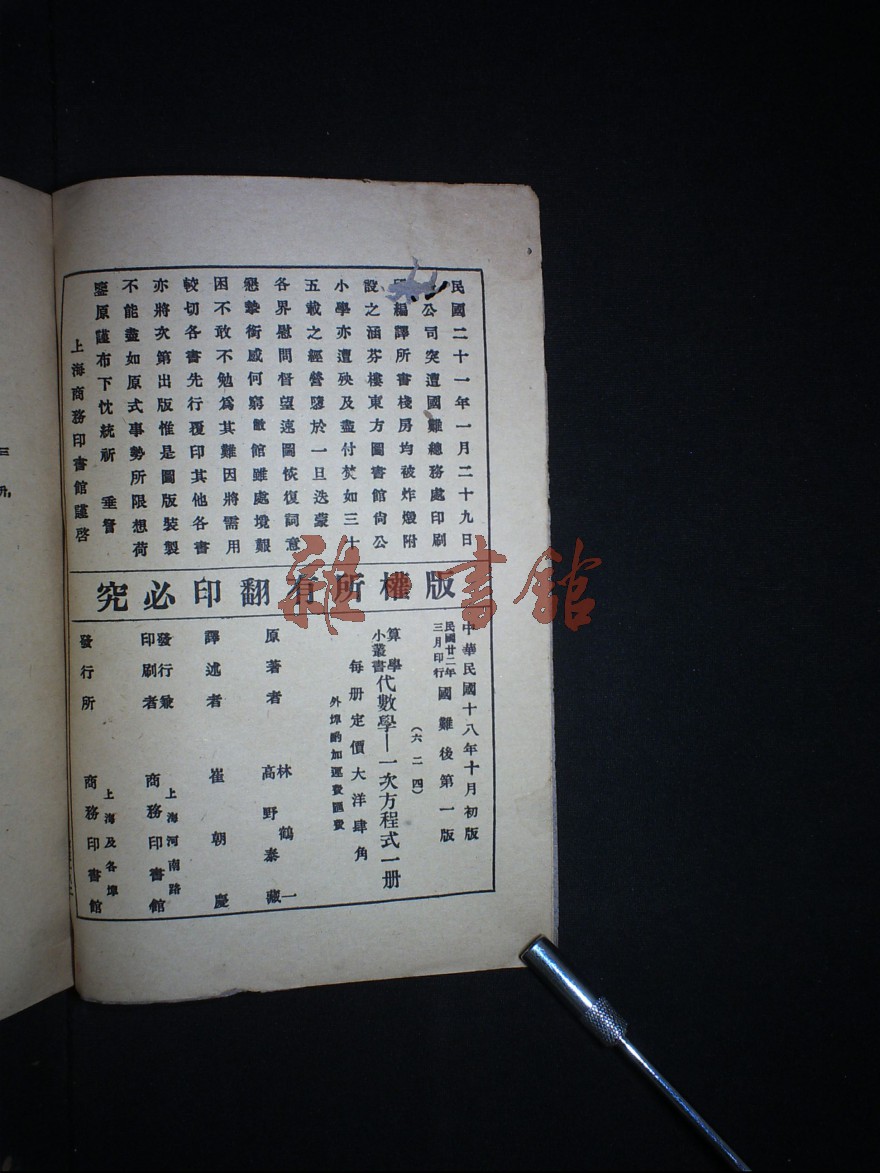 民國二十一年一月二十九日
公司突遭國難總務處印刷
編譯所書棧房均被炸燬附
設之涵芬樓東方圖書館尙公
小學亦遭殃及盡付焚如三十
五載之經營隳於一旦迭蒙
各界慰問督望速圖恢復詞意
懇摯銜感何窮敝館雖處境艱
困不敢不勉爲其難因將需用
較切各書先行覆印其他各書
亦將次第出版惟是圖版裝製
不能盡如原式事勢所限想荷
鑒原謹布下忱統祈 垂詧
上海商務印書館謹啓
版權所有翻印必究
中華民國十八年十月初版
民國廿二年三月印行 國難後第一版
(六二四)
算學小叢書 代數學—一次方程式一册
每册定價大洋肆角
外埠酌加運費匯費
原著者 林鶴一 高野泰藏
譯述者 崔朝慶
發行兼印刷者 上海河南路 商務印書館
發行所 上海及各埠 商務印書館
雜書館